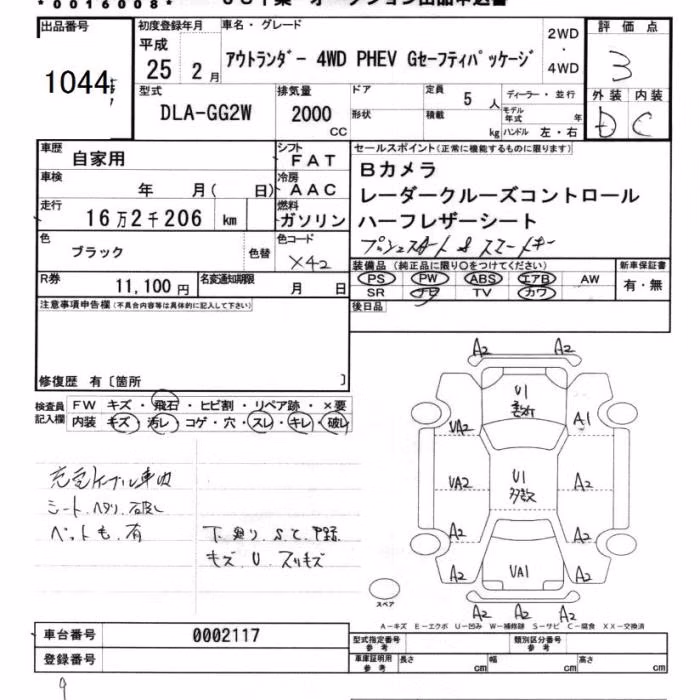 *0016008*
出品番号 初度登録年月 車名・グレード 2WD・4WD 評価点
1044 平成25 2月 アウトランダー 4WD PHEV Gセーフティパッケージ 3
型式 排気量 ドア 定員 5人 ディーラー・並行 外装 内装
DLA-GG2W 2000cc 形状 積載 kg モデル年式 年 ハンドル 左・右 D C
車歴 自家用 シフト FAT セールスポイント(正常に機能するものに限ります)
車検 年 月( 日) 冷房 AAC Bカメラ
走行 16万2千206 km 燃料 ガソリン レーダークルーズコントロール
ハーフレザーシート
色 ブラック 色替 色コード X42 プッシュスタート & スマートキー
R券 11,100円 名変通知期限 月 日
装備品(純正品に限り○をつけてください) 新車保証書
PS PW ABS エアB AW 有・無
SR ナビ TV カワ
注意事項申告欄(不具合内容等は具体的に記入して下さい) 後日品
修復歴 有〔箇所 〕
検査員記入欄 FW キズ・飛石・ヒビ割・リペア跡・×要
内装 キズ・汚レ・コゲ・穴・スレ・キレ・破レ
充電ケーブル車内
シート.ヘタリ.破レ
ペット毛.有
下廻り.S.C.
キズ.U.スリキズ
A2 A2
U1
VA2 A1
VA2 U1 A2
多キズ
A2 A2
A2 VA1 A2
A2 A2 A2
スペア
A-キズ E-エクボ U-凹み W-補修跡 S-サビ C-腐食 XX-交換済
車台番号 0002117 型式指定番号 参考 類別区分番号 参考
登録番号 車庫証明用 参考 長さ cm 幅 cm 高さ cm
9